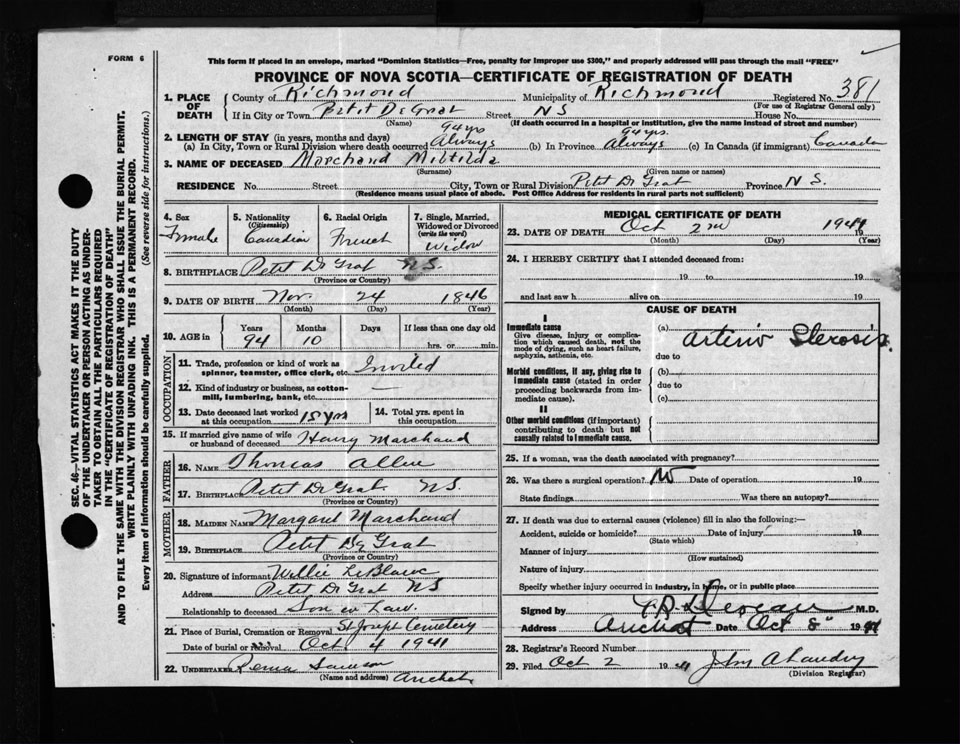 FORM 6
This form if placed in an envelope, marked "Dominion Statistics—Free, penalty for improper use $300," and properly addressed will pass through the mail "FREE"
PROVINCE OF NOVA SCOTIA—CERTIFICATE OF REGISTRATION OF DEATH
1. PLACE OF DEATH County of Richmond Municipality of Richmond Registered No. 381
(For use of Registrar General only)
If in City or Town Petit De Grat Street NS House No.
(Name) (If death occurred in a hospital or institution, give the name instead of street and number)
2. LENGTH OF STAY (in years, months and days) 94 yrs 94 yrs.
(a) In City, Town or Rural Division where death occurred Always (b) In Province Always (c) In Canada (if immigrant) Canada
3. NAME OF DECEASED Marchand Miltilda
(Surname) (Given name or names)
RESIDENCE No. Street City, Town or Rural Division Petit De Grat Province N S.
(Residence means usual place of abode. Post Office Address for residents in rural parts not sufficient)
4. Sex Female
5. Nationality (Citizenship) Canadian
6. Racial Origin French
7. Single, Married, Widowed or Divorced (write the word) Widow
8. BIRTHPLACE Petit De Grat N S.
(Province or Country)
9. DATE OF BIRTH Nov. 24 1846
(Month) (Day) (Year)
10. AGE in Years Months Days If less than one day old
94 10 hrs. or min.
OCCUPATION
11. Trade, profession or kind of work as spinner, teamster, office clerk, etc.
12. Kind of industry or business, as cotton-mill, lumbering, bank, etc. —
13. Date deceased last worked at this occupation 15 yrs
14. Total yrs. spent in this occupation
15. If married give name of wife or husband of deceased Henry Marchand
FATHER
16. NAME Thomas Allen
17. BIRTHPLACE Petit De Grat NS.
(Province or Country)
MOTHER
18. MAIDEN NAME Margaret Marchand
19. BIRTHPLACE Petit De Grat
(Province or Country)
20. Signature of informant Willie LeBlanc
Address Petit De Grat NS
Relationship to deceased Son in Law.
21. Place of Burial, Cremation or Removal St Joseph Cemetery
Date of burial or removal Oct. 4 1941
22. UNDERTAKER Samson
(Name and address) Arichat
MEDICAL CERTIFICATE OF DEATH
23. DATE OF DEATH Oct 2nd 1941
(Month) (Day) (Year)
24. I HEREBY CERTIFY that I attended deceased from:
19 to 19
and last saw h alive on 19
CAUSE OF DEATH
I
Immediate cause
Give disease, injury or complication which caused death, not the mode of dying, such as heart failure, asphyxia, asthenia, etc.
(a) Arterio Sclerosis.
due to
Morbid conditions, if any, giving rise to immediate cause (stated in order proceeding backwards from immediate cause).
(b)
due to
(c)
II
Other morbid conditions (if important) contributing to death but not causally related to immediate cause.
25. If a woman, was the death associated with pregnancy?
26. Was there a surgical operation? No Date of operation 19
State findings Was there an autopsy?
27. If death was due to external causes (violence) fill in also the following:—
Accident, suicide or homicide? Date of injury 19
(State which)
Manner of injury
(How sustained)
Nature of injury
Specify whether injury occurred in industry, in home, or in public place
Signed by M.D.
Address Arichat Date Oct 8" 1941
28. Registrar's Record Number
29. Filed Oct 2 19 41 John A Landry
(Division Registrar)
SEC. 46—VITAL STATISTICS ACT MAKES IT THE DUTY
OF THE UNDERTAKER OR PERSON ACTING AS UNDER-
TAKER TO OBTAIN ALL THE PARTICULARS REQUIRED
IN THE "CERTIFICATE OF REGISTRATION OF DEATH"
AND TO FILE THE SAME WITH THE DIVISION REGISTRAR WHO SHALL ISSUE THE BURIAL PERMIT.
WRITE PLAINLY WITH UNFADING INK. THIS IS A PERMANENT RECORD.
Every item of information should be carefully supplied. (See reverse side for instructions.)